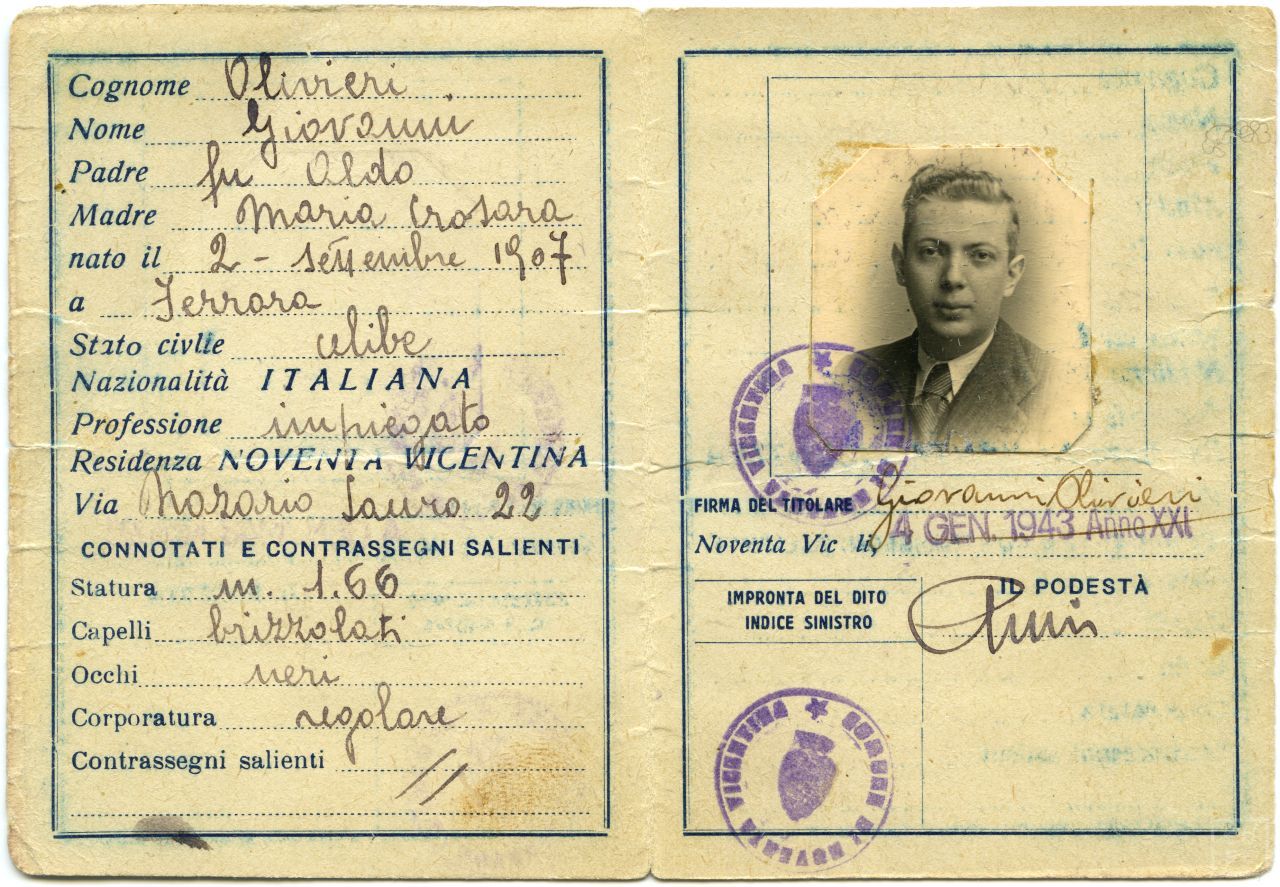 Cognome Olivieri
Nome Giovanni
Padre fu Aldo
Madre Maria Crosara
nato il 2 - settembre 1907
a Ferrara
Stato civile celibe
Nazionalità ITALIANA
Professione impiegato
Residenza NOVENTA VICENTINA
Via Nazario Sauro 22
CONNOTATI E CONTRASSEGNI SALIENTI
Statura m. 1.66
Capelli brizzolati
Occhi neri
Corporatura regolare
Contrassegni salienti //
COMUNE DI NOVENTA VICENTINA
FIRMA DEL TITOLARE Giovanni Olivieri
Noventa Vic li, 4 GEN. 1943 Anno XXI
IL PODESTÀ
IMPRONTA DEL DITO
INDICE SINISTRO
COMUNE DI NOVENTA VICENTINA